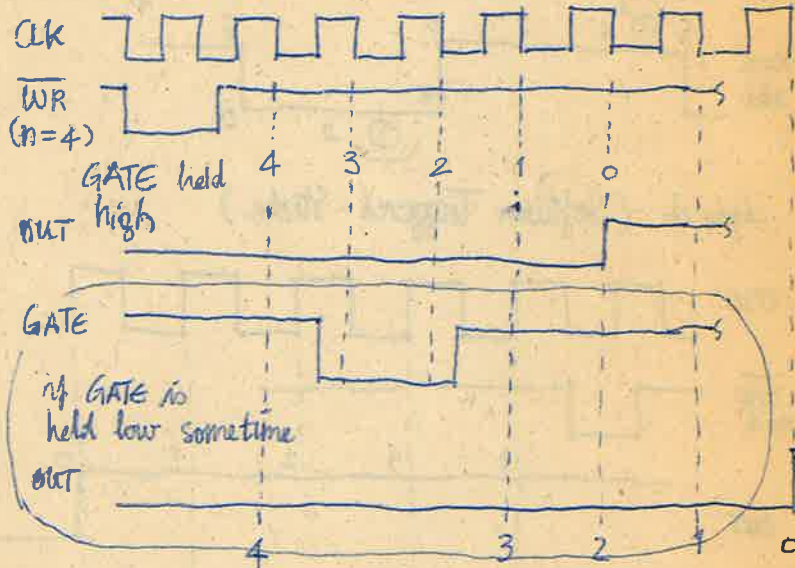 CLK
WR
(n=4)
GATE held high
4 3 2 1 0
OUT
GATE
if GATE is
held low sometime
OUT
4 3 2 1 0